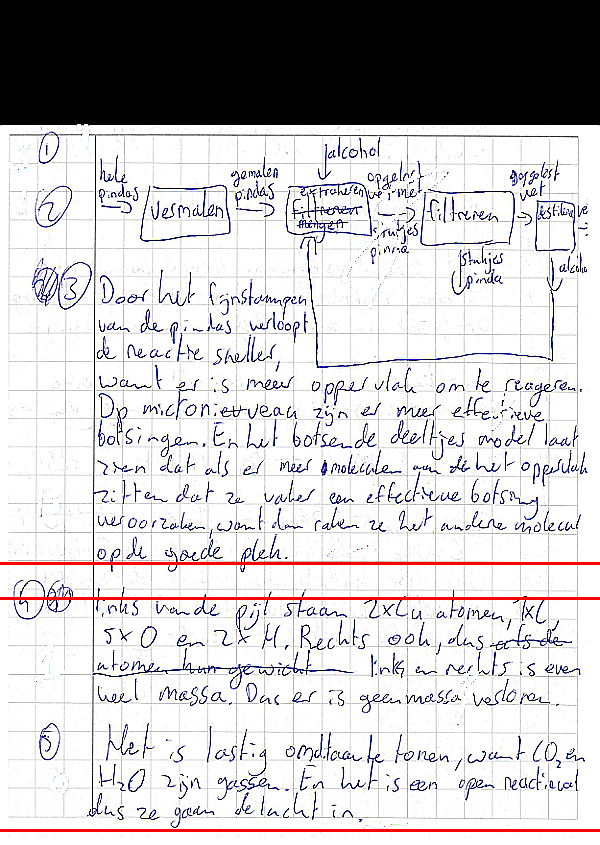 1
alcohol
hele pindas
gemalen pindas
opgelost vet met stukjes pinda
opgelost vet
2
Vermalen
extraheren
filtreren
mengen
filtreren
destilleren
ve
stukjes pinda
alcoho
3 Door het fijnstampen
van de pindas verloopt
de reactie sneller,
want er is meer oppervlak om te reageren.
Op micronieuveau zijn er meer effectieve
botsingen. En het botsende deeltjes model laat
zien dat als er meer moleculen aan de het oppervlak
zitten dat ze vaker een effectieve botsing
veroorzaken, want dan raken ze het andere molecul
op de goede plek.
4 links van de pijl staan 2xCu atomen, 1xC,
5xO en 2xH. Rechts ook, dus als de
atomen hun gewicht links en rechts is even
veel massa. Dus er is geen massa verloren.
5 Het is lastig om dtaan te tonen, want CO2 en
H2O zijn gassen. En het is een open reactievat
dus ze gaan de lucht in.